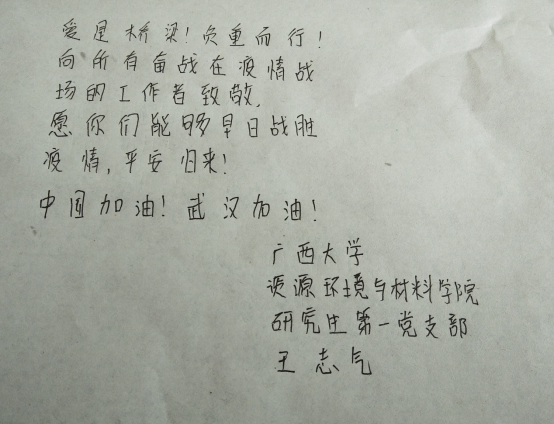 爱是桥梁！负重而行！
向所有奋战在疫情战
场的工作者致敬，
愿你们能够早日战胜
疫情，平安归来！
中国加油！武汉加油！
广西大学
资源环境与材料学院
研究生第一党支部
王志气